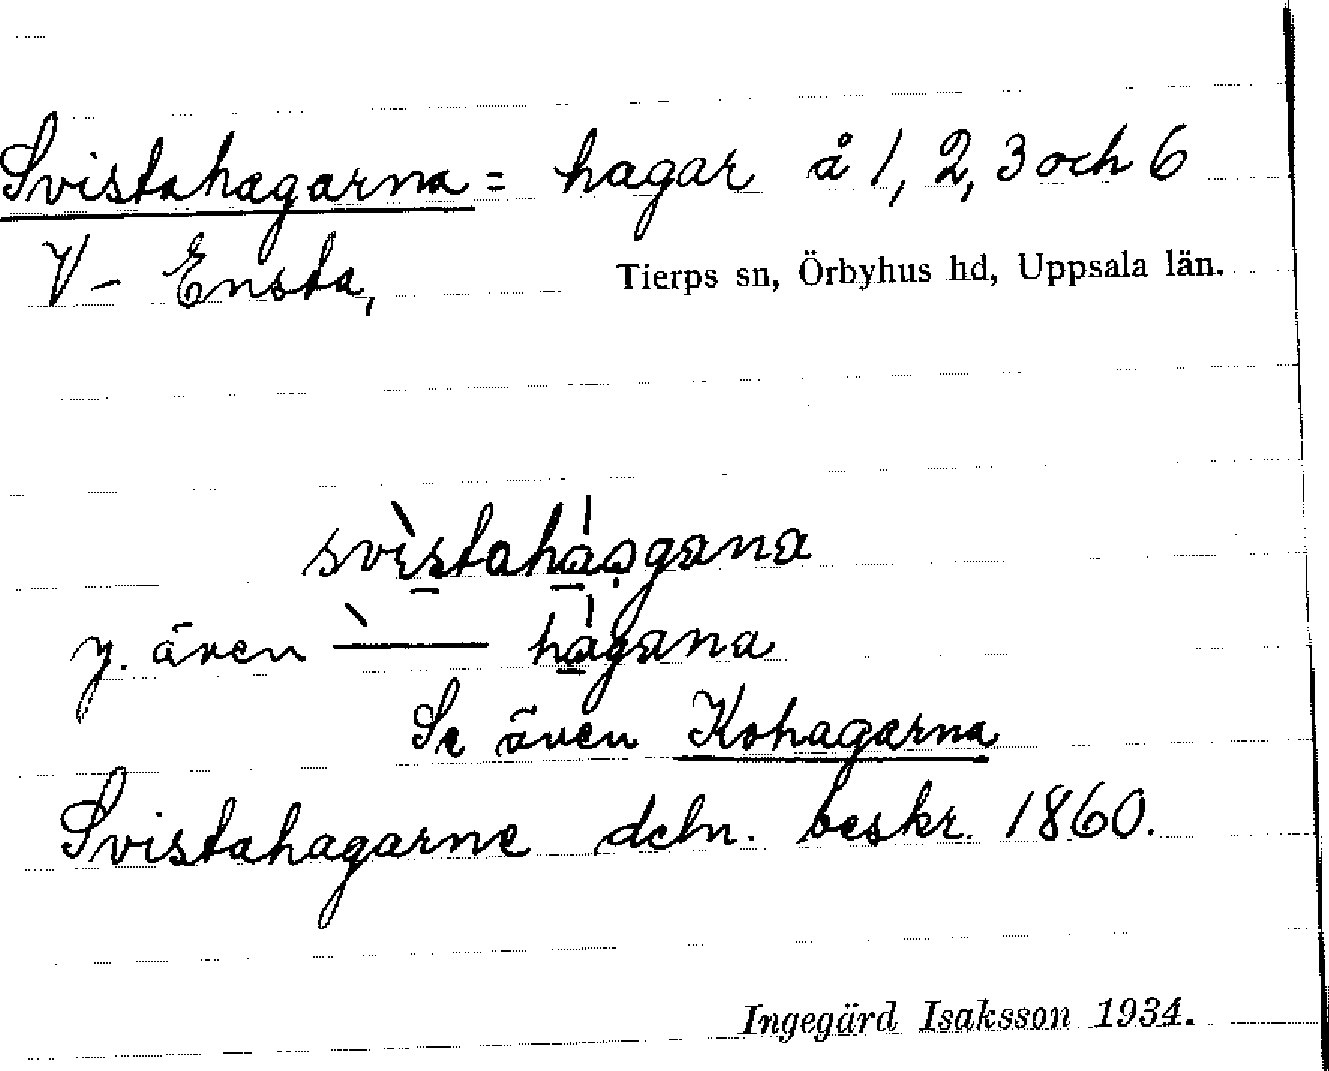 Svistahagarna = hagar å 1, 2, 3 och 6
V- Ensta, Tierps sn, Örbyhus hd, Uppsala län.
svìstahágana
y. även ̀—— hágana
Se även Kohagarna
Svistahagarne dcln. beskr. 1860.
Ingegärd Isaksson 1934.